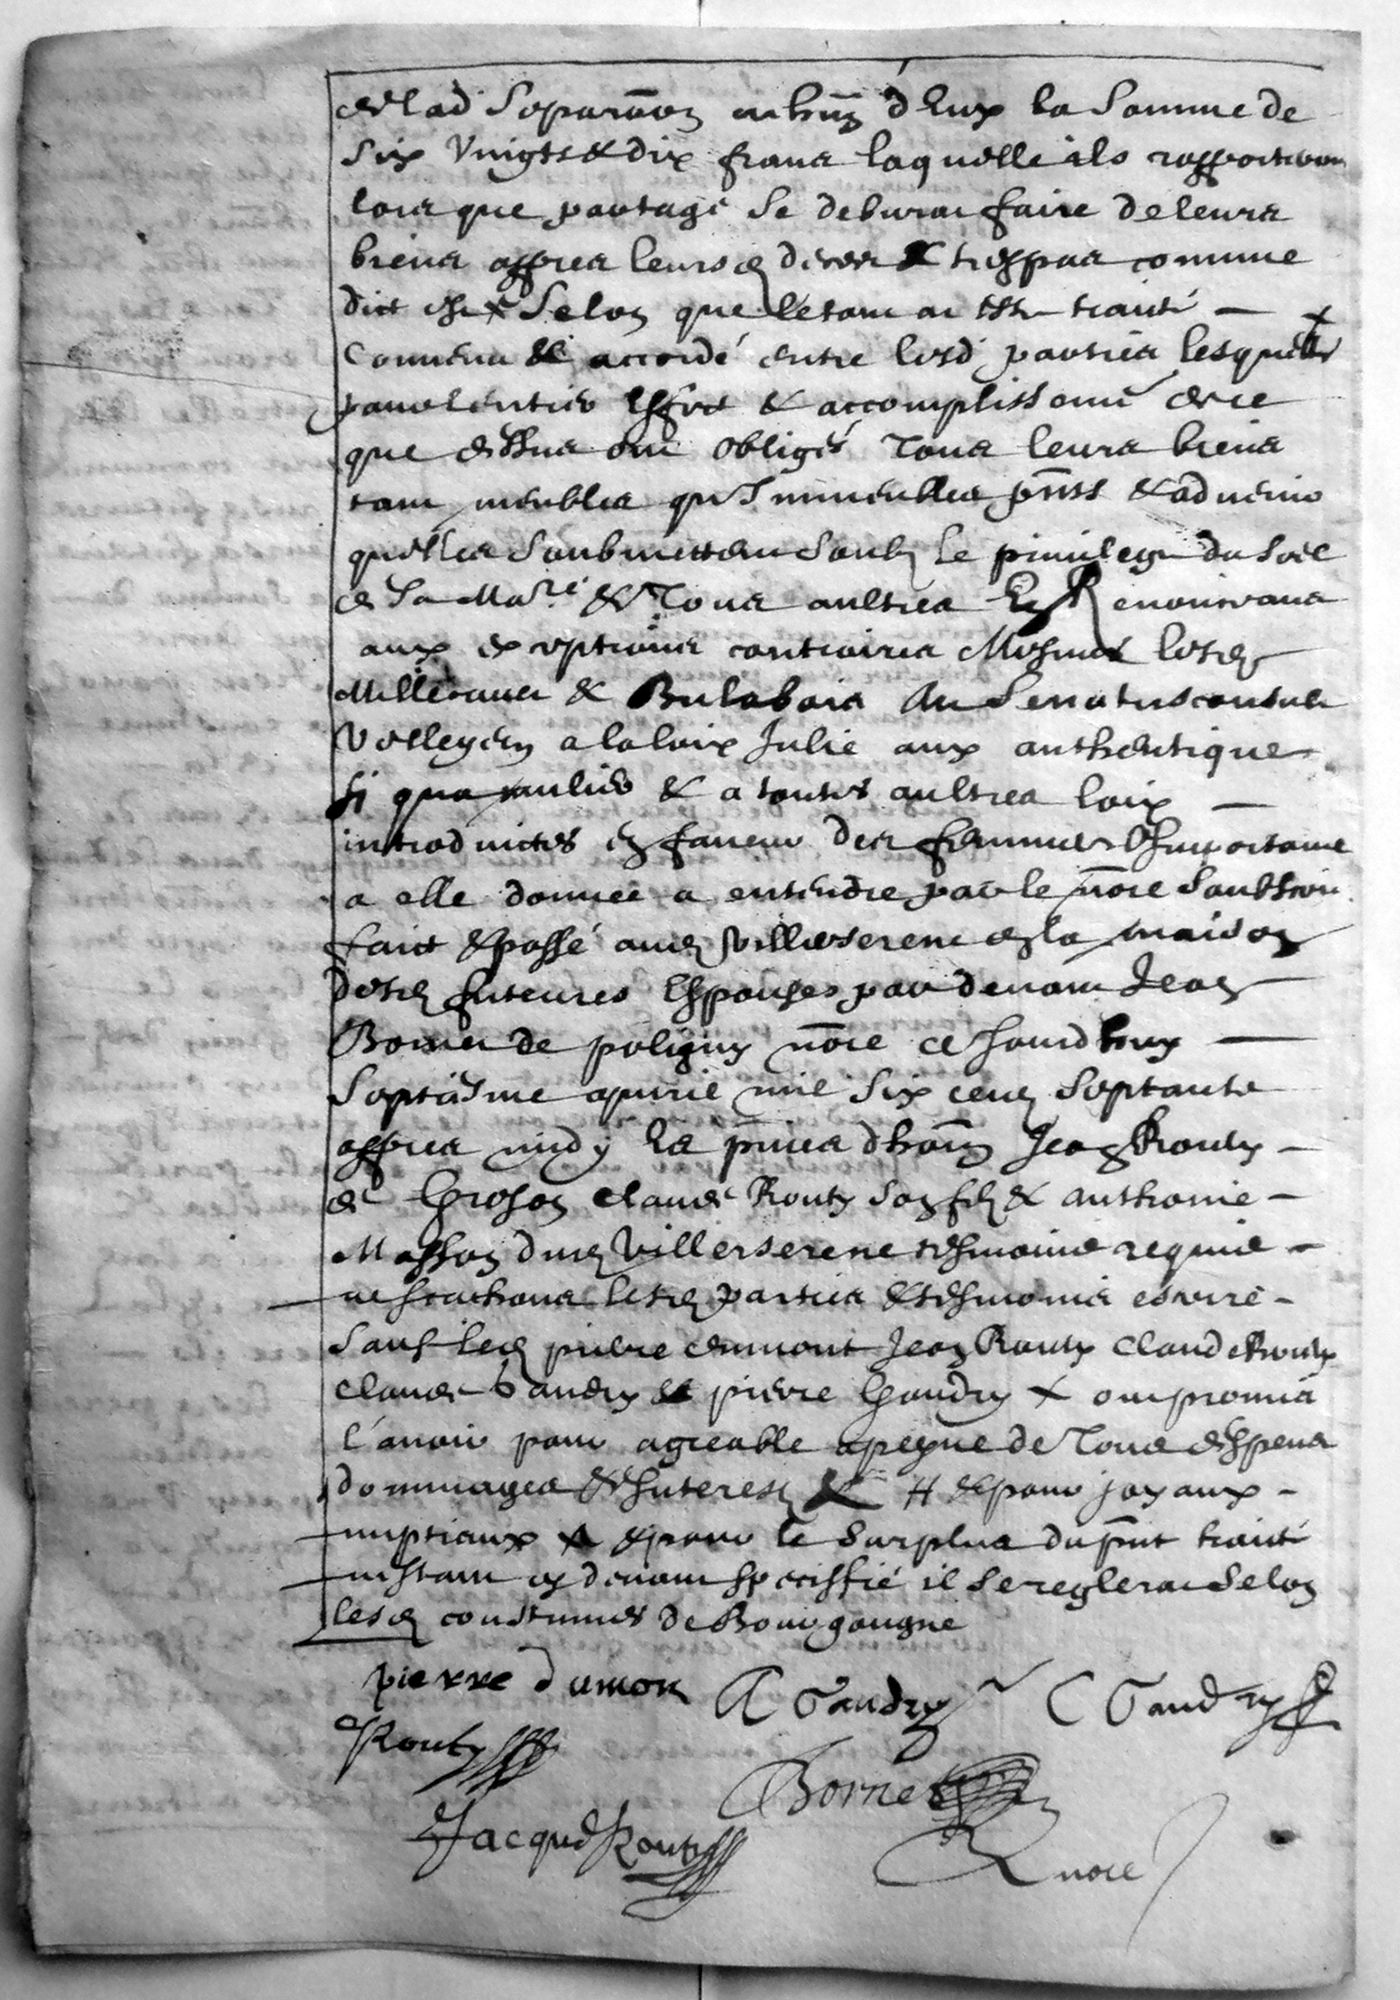 de lad separaon unhung d'Eux la somme de
six vingts & dix francs laquelle ils rapporteront
lors que partage se debvra faire de leurs
biens appres leursd deces & trespas comme
dict est & selon que letout at esté traicté —
convenu & accordé entre lesd parties lesquelles
pour lentier effect & accomplissemt de ce
que dessus ont obligés Tous leurs biens
tant meubles qu'Immeubles pnts & advenir
quelles soubmettent soubz le privilege du seel
de Sa Maté & Tous aultres En Renonceans
aux exceptions contraires Mesmes lesd
Millerenes & au Senatusconsult
Velleyen a la loix Julie aux authentique
si qua mulier & a toutes aultres loix —
introduictes en faveur des femmes
a elle donnée a entendre par le nore soubscri
faict & passé aud Villerserene en la maison
desd futeures Espouses par devant Jean
Bornet de poligny nore cejourdhuy —
septiesme apvril mil six cens septante
appres midy Es pnces d'hon Jean Routy —
de Groson Claude Routy son fil & anthoine —
Masson dud Villerserene tesmoins requis —
lesd parties & tesmoins escrire —
sauf led pierre dumont Jean Routy Claude Routy
Claude Gaudry & pierre Gaudry & ont promis
l'avoir pour agreable a peyne de Tous despens
dommages & Interestz & # & pour joyaux —
nuptiaux & & pour le surplus du pnt traicté
non cy devant specifié il se reglerat selon
lesd coustumes de Bourgougne
pierre dumon A Gaudry C Gaudry
Routy
Bornet
Jacque Routy
nore